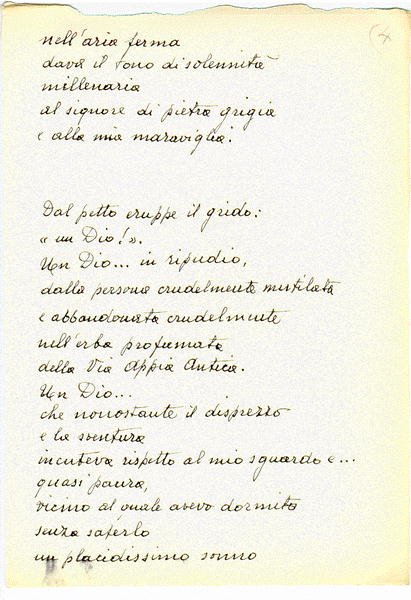 nell'aria ferma
dava il tono di solennità
millenaria
al signore di pietra grigia
e alla mia maraviglia.
Dal petto eruppe il grido:
« un Dio! ».
Un Dio... in ripudio,
dalla persona crudelmente mutilata
e abbandonata crudelmente
nell'erba profumata
della Via Appia Antica.
Un Dio...
che nonostante il disprezzo
e la sventura
incuteva rispetto al mio sguardo e...
quasi paura,
vicino al quale avevo dormito
senza saperlo
un placidissimo sonno